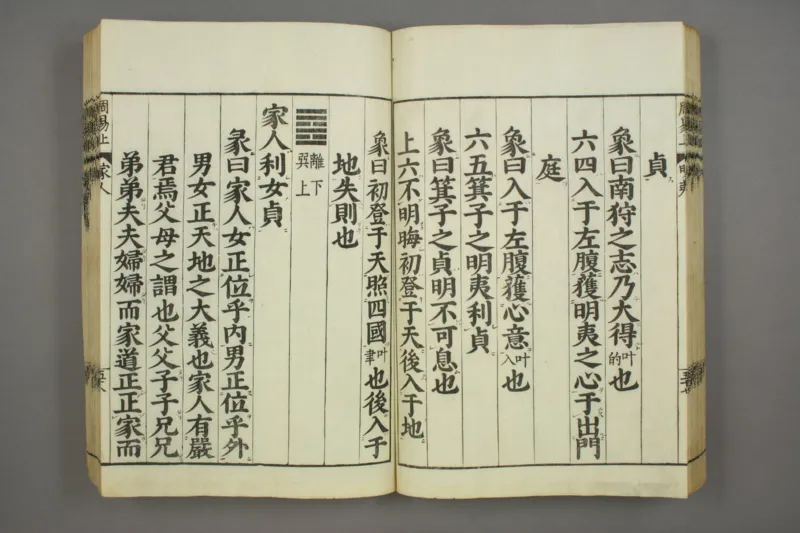 貞
象曰南狩之志乃大得叶的也
六四入于左腹獲明夷之心于出門
庭
象曰入于左腹獲心意叶入也
六五箕子之明夷利貞
象曰箕子之貞明不可息也
上六不明晦初登于天後入于地
象曰初登于天照四國叶聿也後入于
地失則也
䷤離下巽上
家人利女貞
彖曰家人女正位乎內男正位乎外
男女正天地之大義也家人有嚴
君焉父母之謂也父父子子兄兄
弟弟夫夫婦婦而家道正正家而
周易上 家人